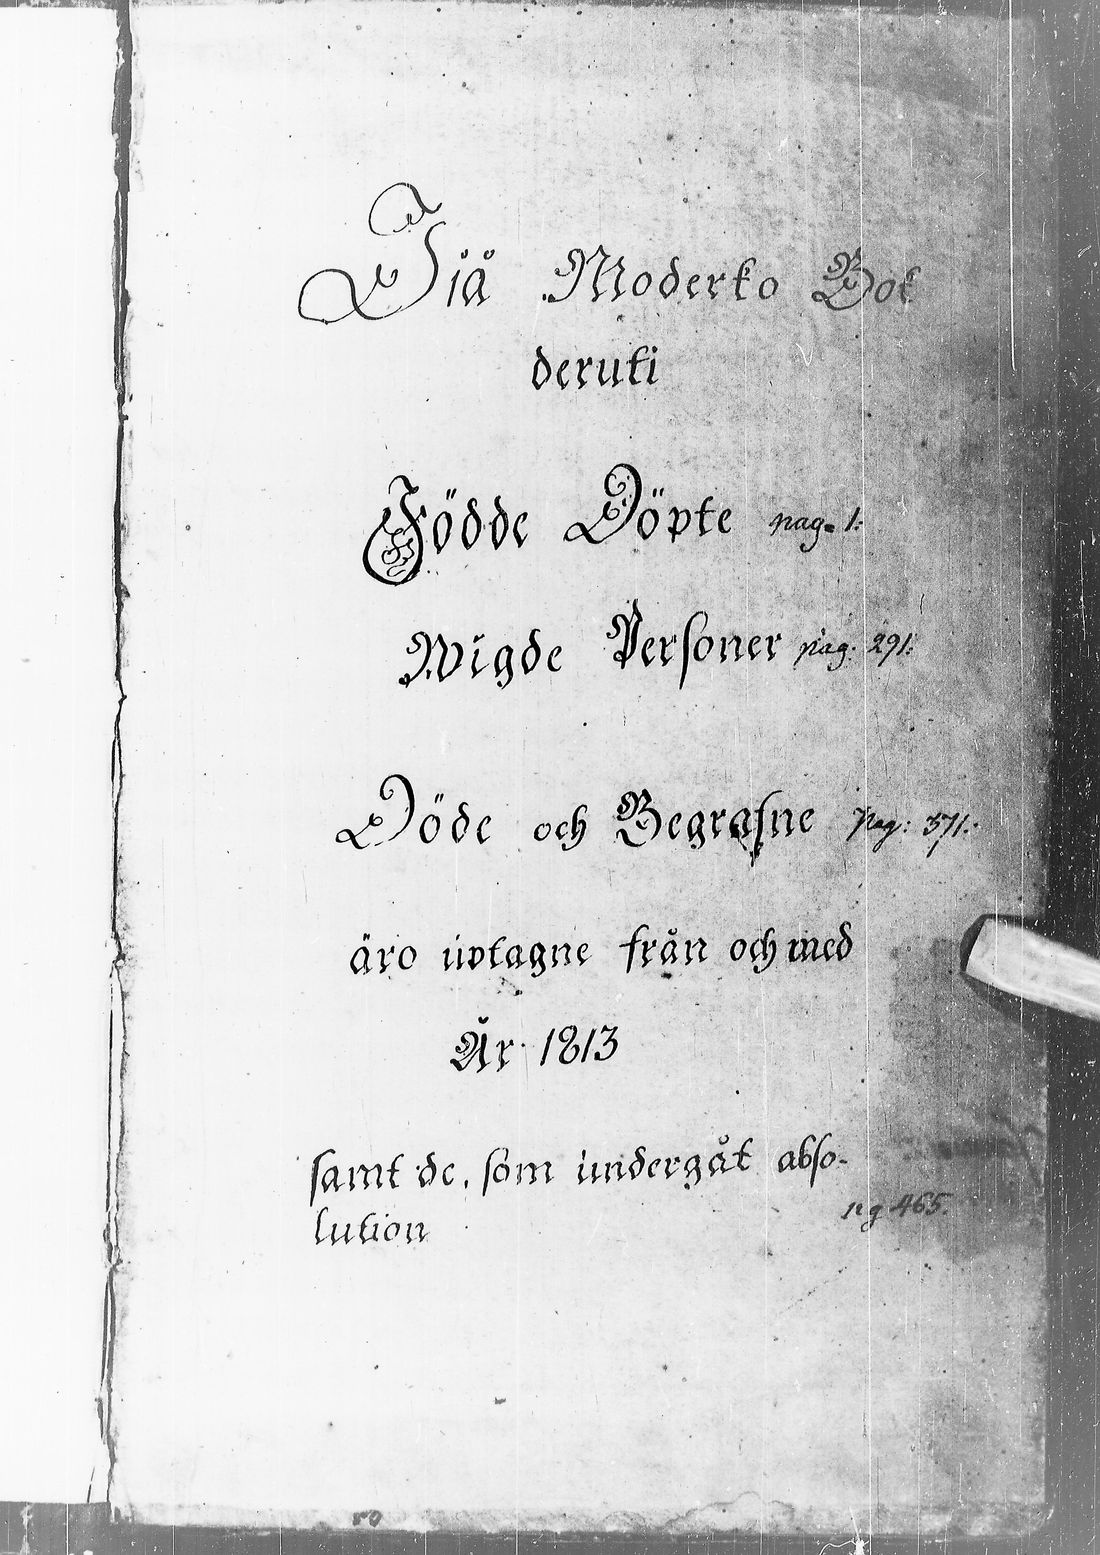 Iiå Moderko Bok
deruti
Födde Döpte pag. 1:
Wigde Personer pag: 291:
Döde och Begrafne Pag: 371:
äro uptagne från och med
År 1813
samt de, som undergåt abso-
lution pag 465.